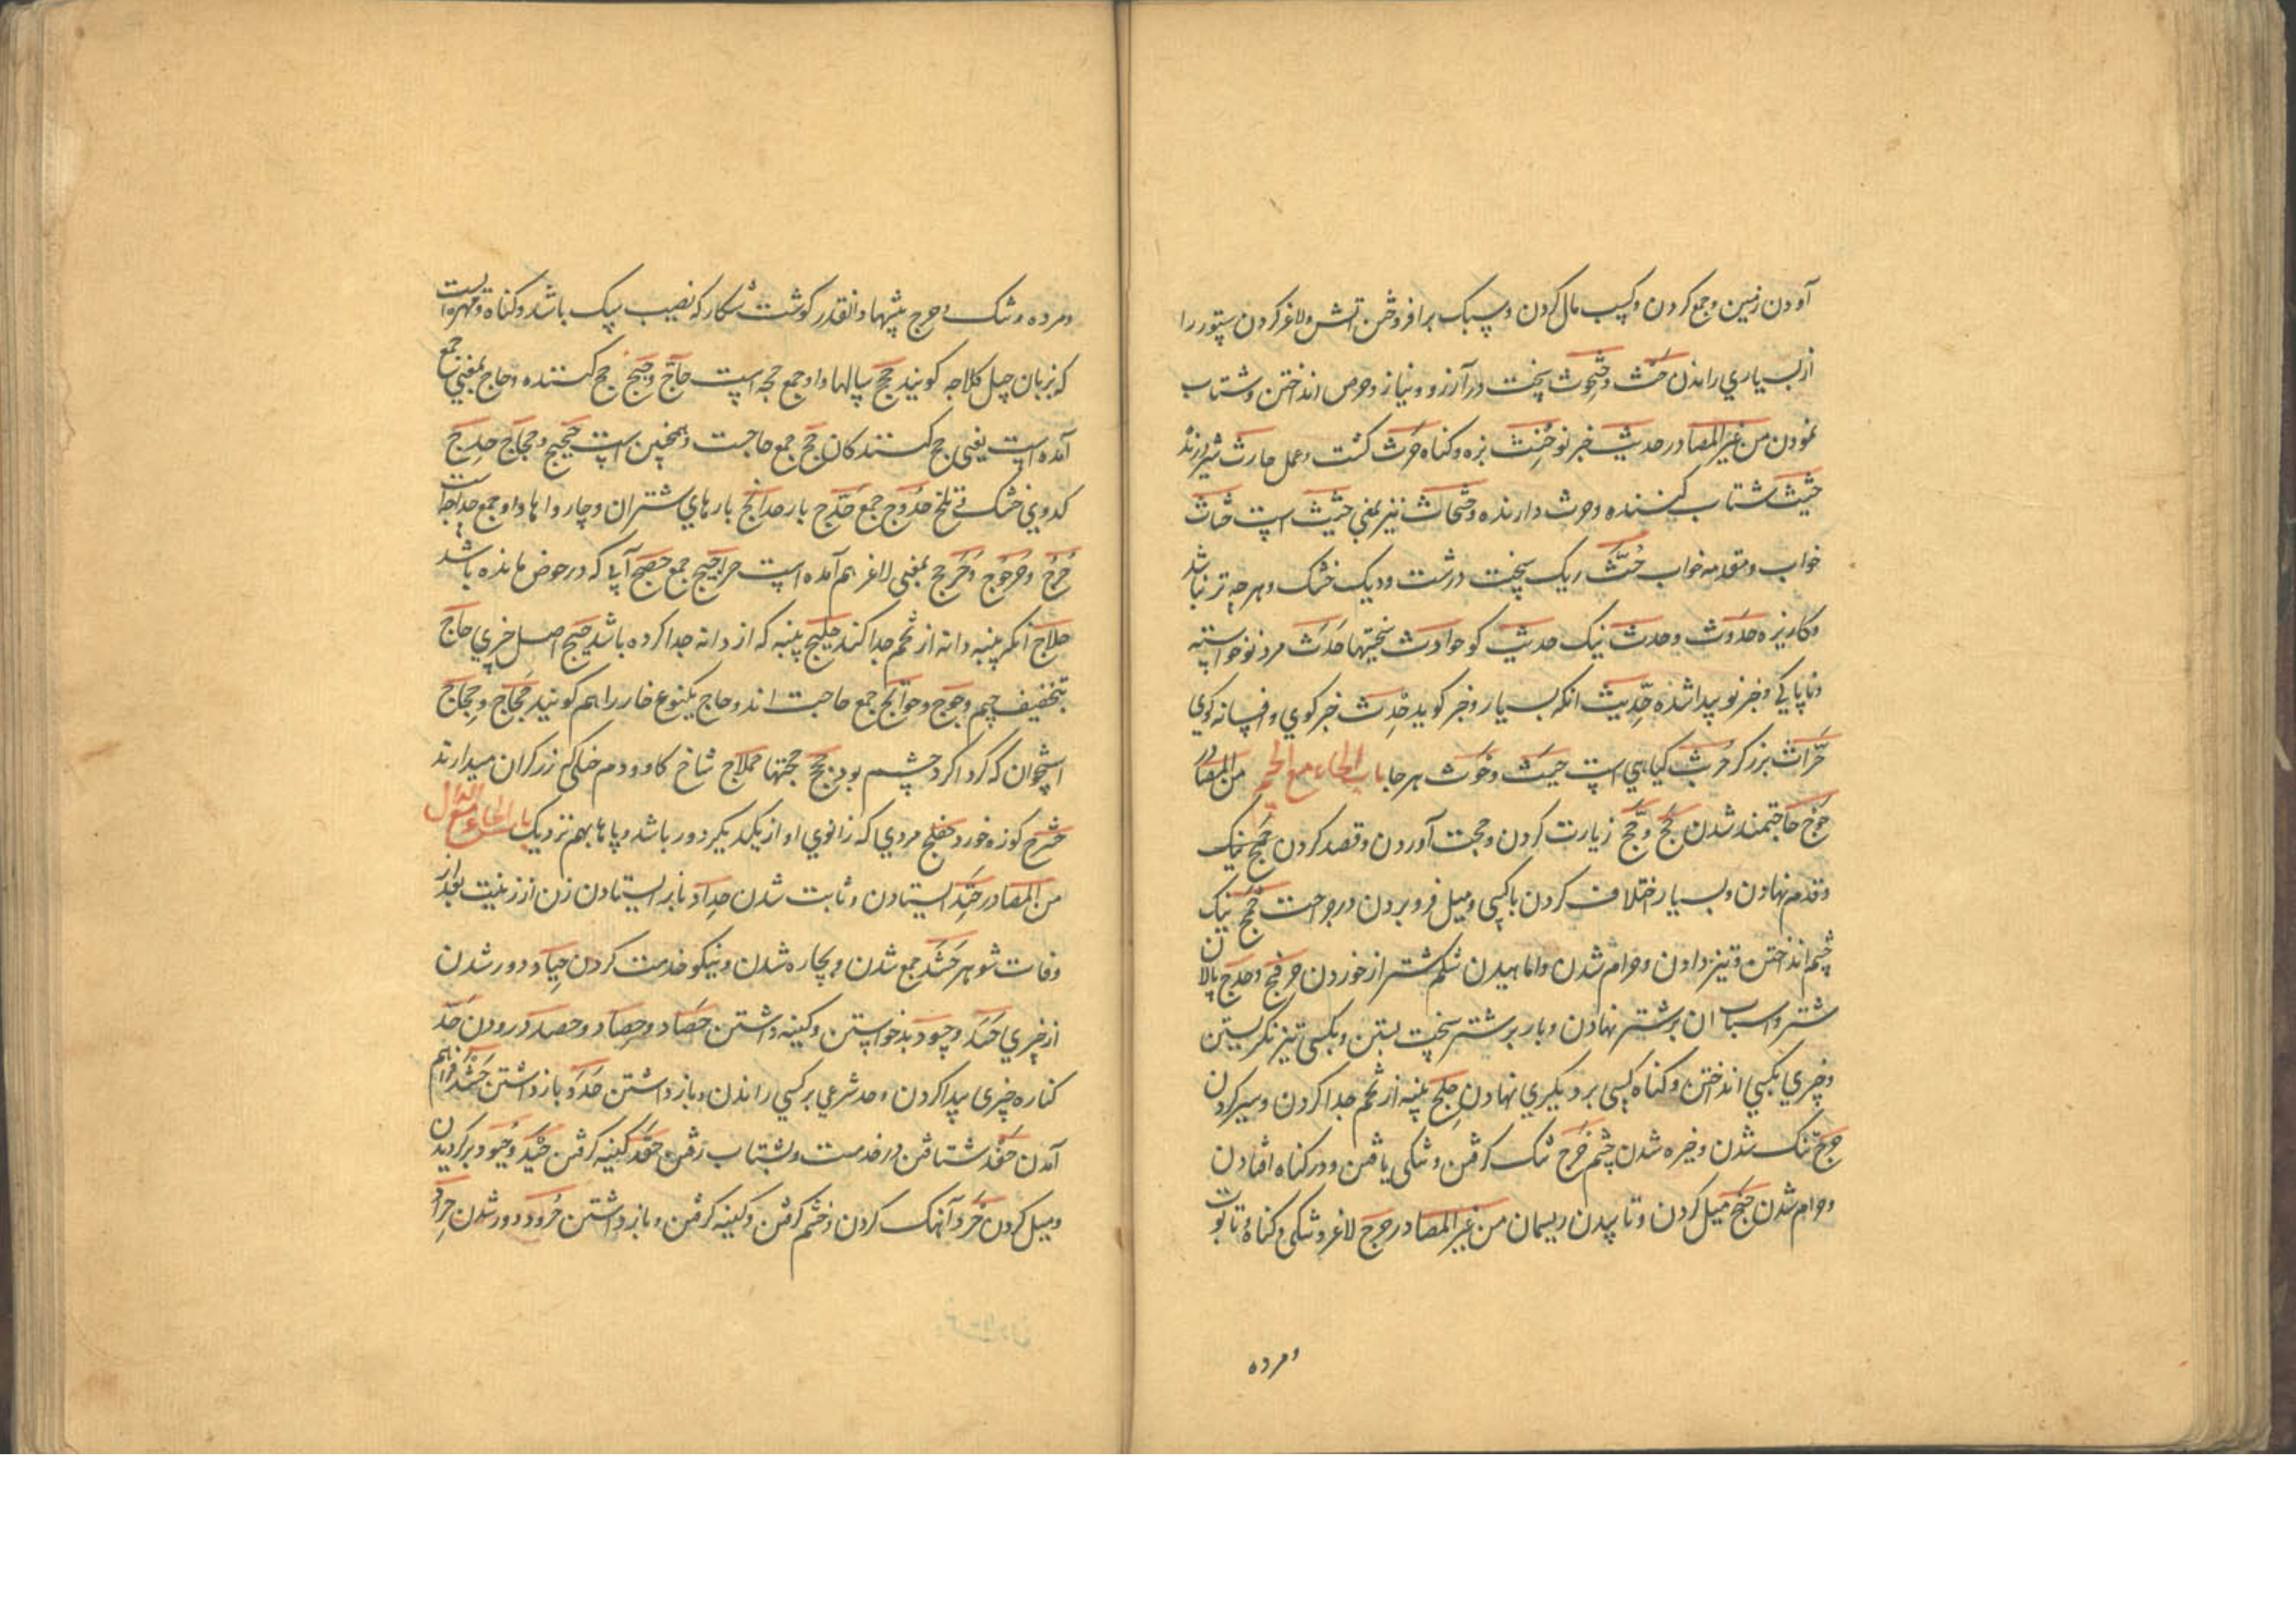 آوردن زمین و جمع کردن و کسب مال کردن و سبک برافروختن آتش و لاغر کردن ستور را
از بسیاری راندن حَثّ و حثوث سخت در آرزو و نیاز و حرص انداختن و شتاب
نمودن من غیر المصادر حدیث خبر نو حِنث بزه و کناه حَرث کشت و عمل حارث شیر درنده
حثیث شتاب کننده و حرث دارنده و حثحاث نیز بمعنی حثیث است حثاث
خواب و مقدمه خواب حُثّ ریک سخت درشت و ریک خشک و هرچه تر نباشد
و کاریزه حَدُوث و حدث نیک حدیث کو حوادث سختیها حَدَث مرد نوخواسته
و ناپاکی و خبر نو پیدا شده حِدّیث انکه بسیار خبر کوید حِدث خبر کوی و افسانه کوی
حَرّاث برزکر حُربث کیاهی است حیث و حوث هرجا باب الحاء مع الجیم من المصادر
حَوج حاجتمند شدن حَج و حِج زیارت کردن و حجت آوردن و قصد کردن
و قدم نهادن و بسیار اختلاف کردن با کسی و میل فرو بردن در جراحت نیک
چشم انداختن و تیز دادن و حرام شدن و اماهیدن شکم شتر از خوردن عرفج و حدج پالان
شتر و اسباب ان بر شتر نهادن و بار بر شتر سخت بستن و بکسی تیز نکریستن
و چیزی بکسی انداختن و کناه کسی بر دیکری نهادن حلج پنبه از تخم جدا کردن و سیر کردن
حرج تنک شدن و خیره شدن چشم حَرَج تنک کرفتن و تنکی یافتن و در کناه افتادن
و حرام شدن حنج میل کردن و تابیدن ریسمان من غیر المصادر حرج لاغر و تنکی و کناه و تابوت
و مرده
و مرده و تنک و حرج بیشها و انقدر کوشت شکار که نصیب سک باشد و کناه و مهره است
که بزبان کلاجه کویند حجج سالها و او جمع حجه است حاجّ و حجیج حج کننده و حاج بمعنی جمع
آمده است یعنی حج کنندکان حج جمع حاجت و همچنین است حجیج و حجاج حدج
کدوی خشک و تلخ حُدوج جمع حِدج بار حدایج بارهای شتران و چارواها و او جمع حداجه است
حُرج و حرجوج و حرجج بمعنی لاغر هم آمده است حراجیج جمع حضج آبی که در حوض مانده باشد
حلاج انکه پنبه دانه از تخم جدا کند حلیج پنبه که از دانه جدا کرده باشد اصل چیزی حاج
بتخفیف جیم و حوج و حوائج جمع حاجت اند و حاج یکنوع خار را هم کویند حَجاج و حِجاج
استخوان که کرداکرد چشم بود حجج حجتها حملاج شاخ کاو و دم خنکی زرکران میدارند
حشرج کوزه خورد حفلج مردی که زانوی او از یکدیکر دور باشد و پاها بهم نزدیک باب الحاء مع الدال
من المصادر حتد ایستادن و ثابت شدن حِداد باز ایستادن زن از زینت بعد از
وفات شوهر حَشد جمع شدن و بیچاره شدن و نیکو خدمت کردن حِیاد دور شدن
از چیزی حسد و حسود بد خواستن و کینه داشتن حَصاد و حِصاد و حصد درودن حَدّ
کناره چیزی پیدا کردن و حد شرعی بر کسی راندن و باز داشتن حَدَد باز داشتن حَشد فراهم
آمدن حفد شتافتن در خدمت و بشتاب رفتن حِقد کینه کرفتن حَید و حُیود بر کردیدن
و میل کردن حَرد آهنک کردن و خشم کرفتن و کینه کرفتن و باز داشتن حُرود دور شدن